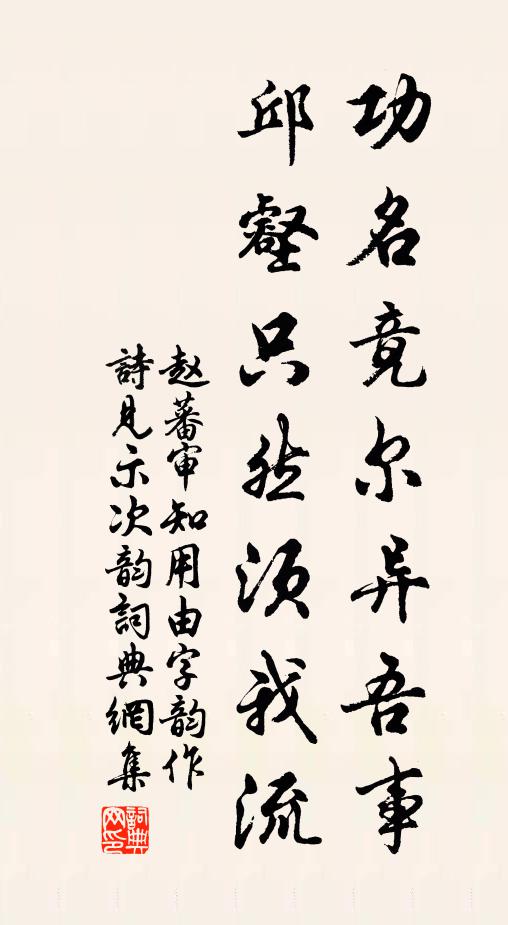 功名竟尔异吾事
邱壑只然须我流
赵蕃审知用由字韵作
詩見示次韵詞典網集
詞典網印